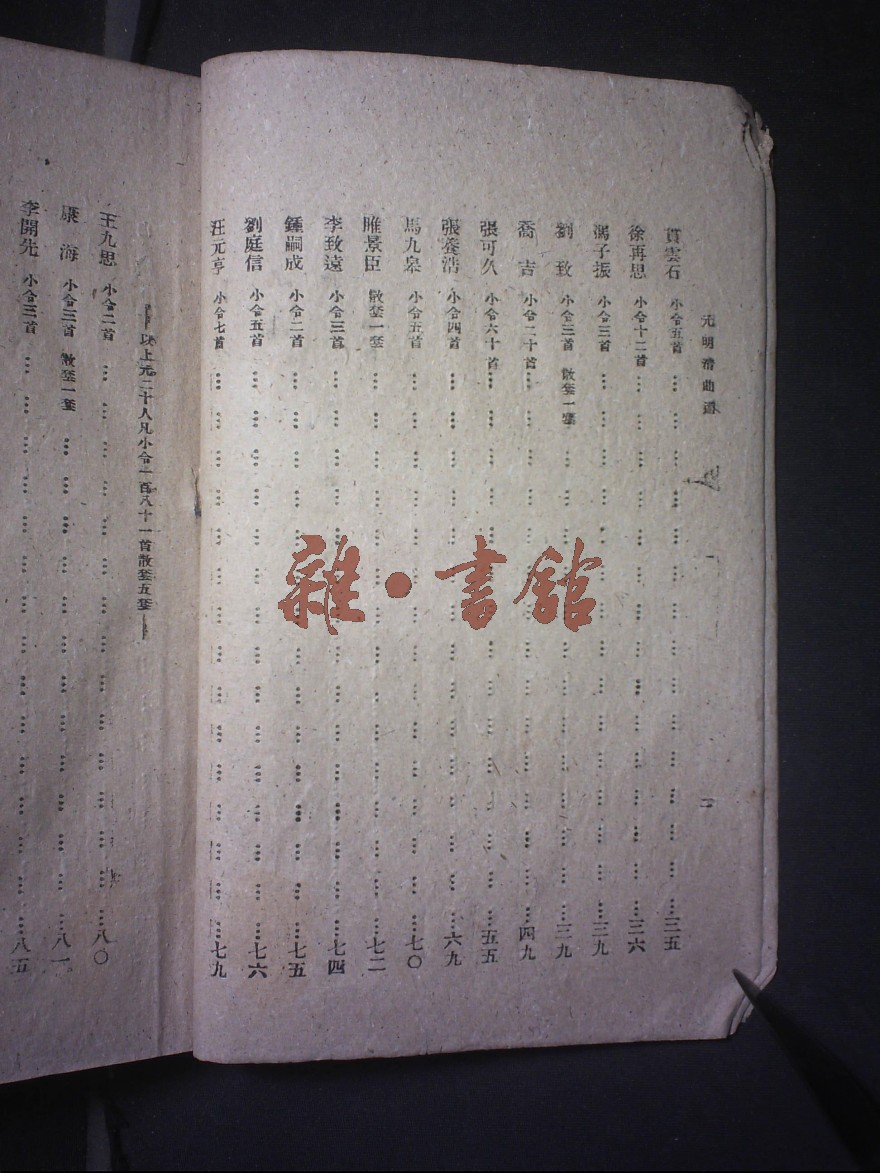 元明清曲選
二
貫雲石 小令五首 三五
徐再思 小令十二首 三六
馮子振 小令三首 三九
劉致 小令三首 散套一套 三九
喬吉 小令二十首 四九
張可久 小令六十首 五五
張養浩 小令四首 六九
馬九皋 小令五首 七〇
睢景臣 散套一套 七二
李致遠 小令三首 七四
鍾嗣成 小令二首 七五
劉庭信 小令五首 七六
汪元亨 小令七首 七九
以上元二十人凡小令一百八十一首散套五套
王九思 小令二首 八〇
康海 小令三首 散套一套 八一
李開先 小令三首 八五
雜·書館